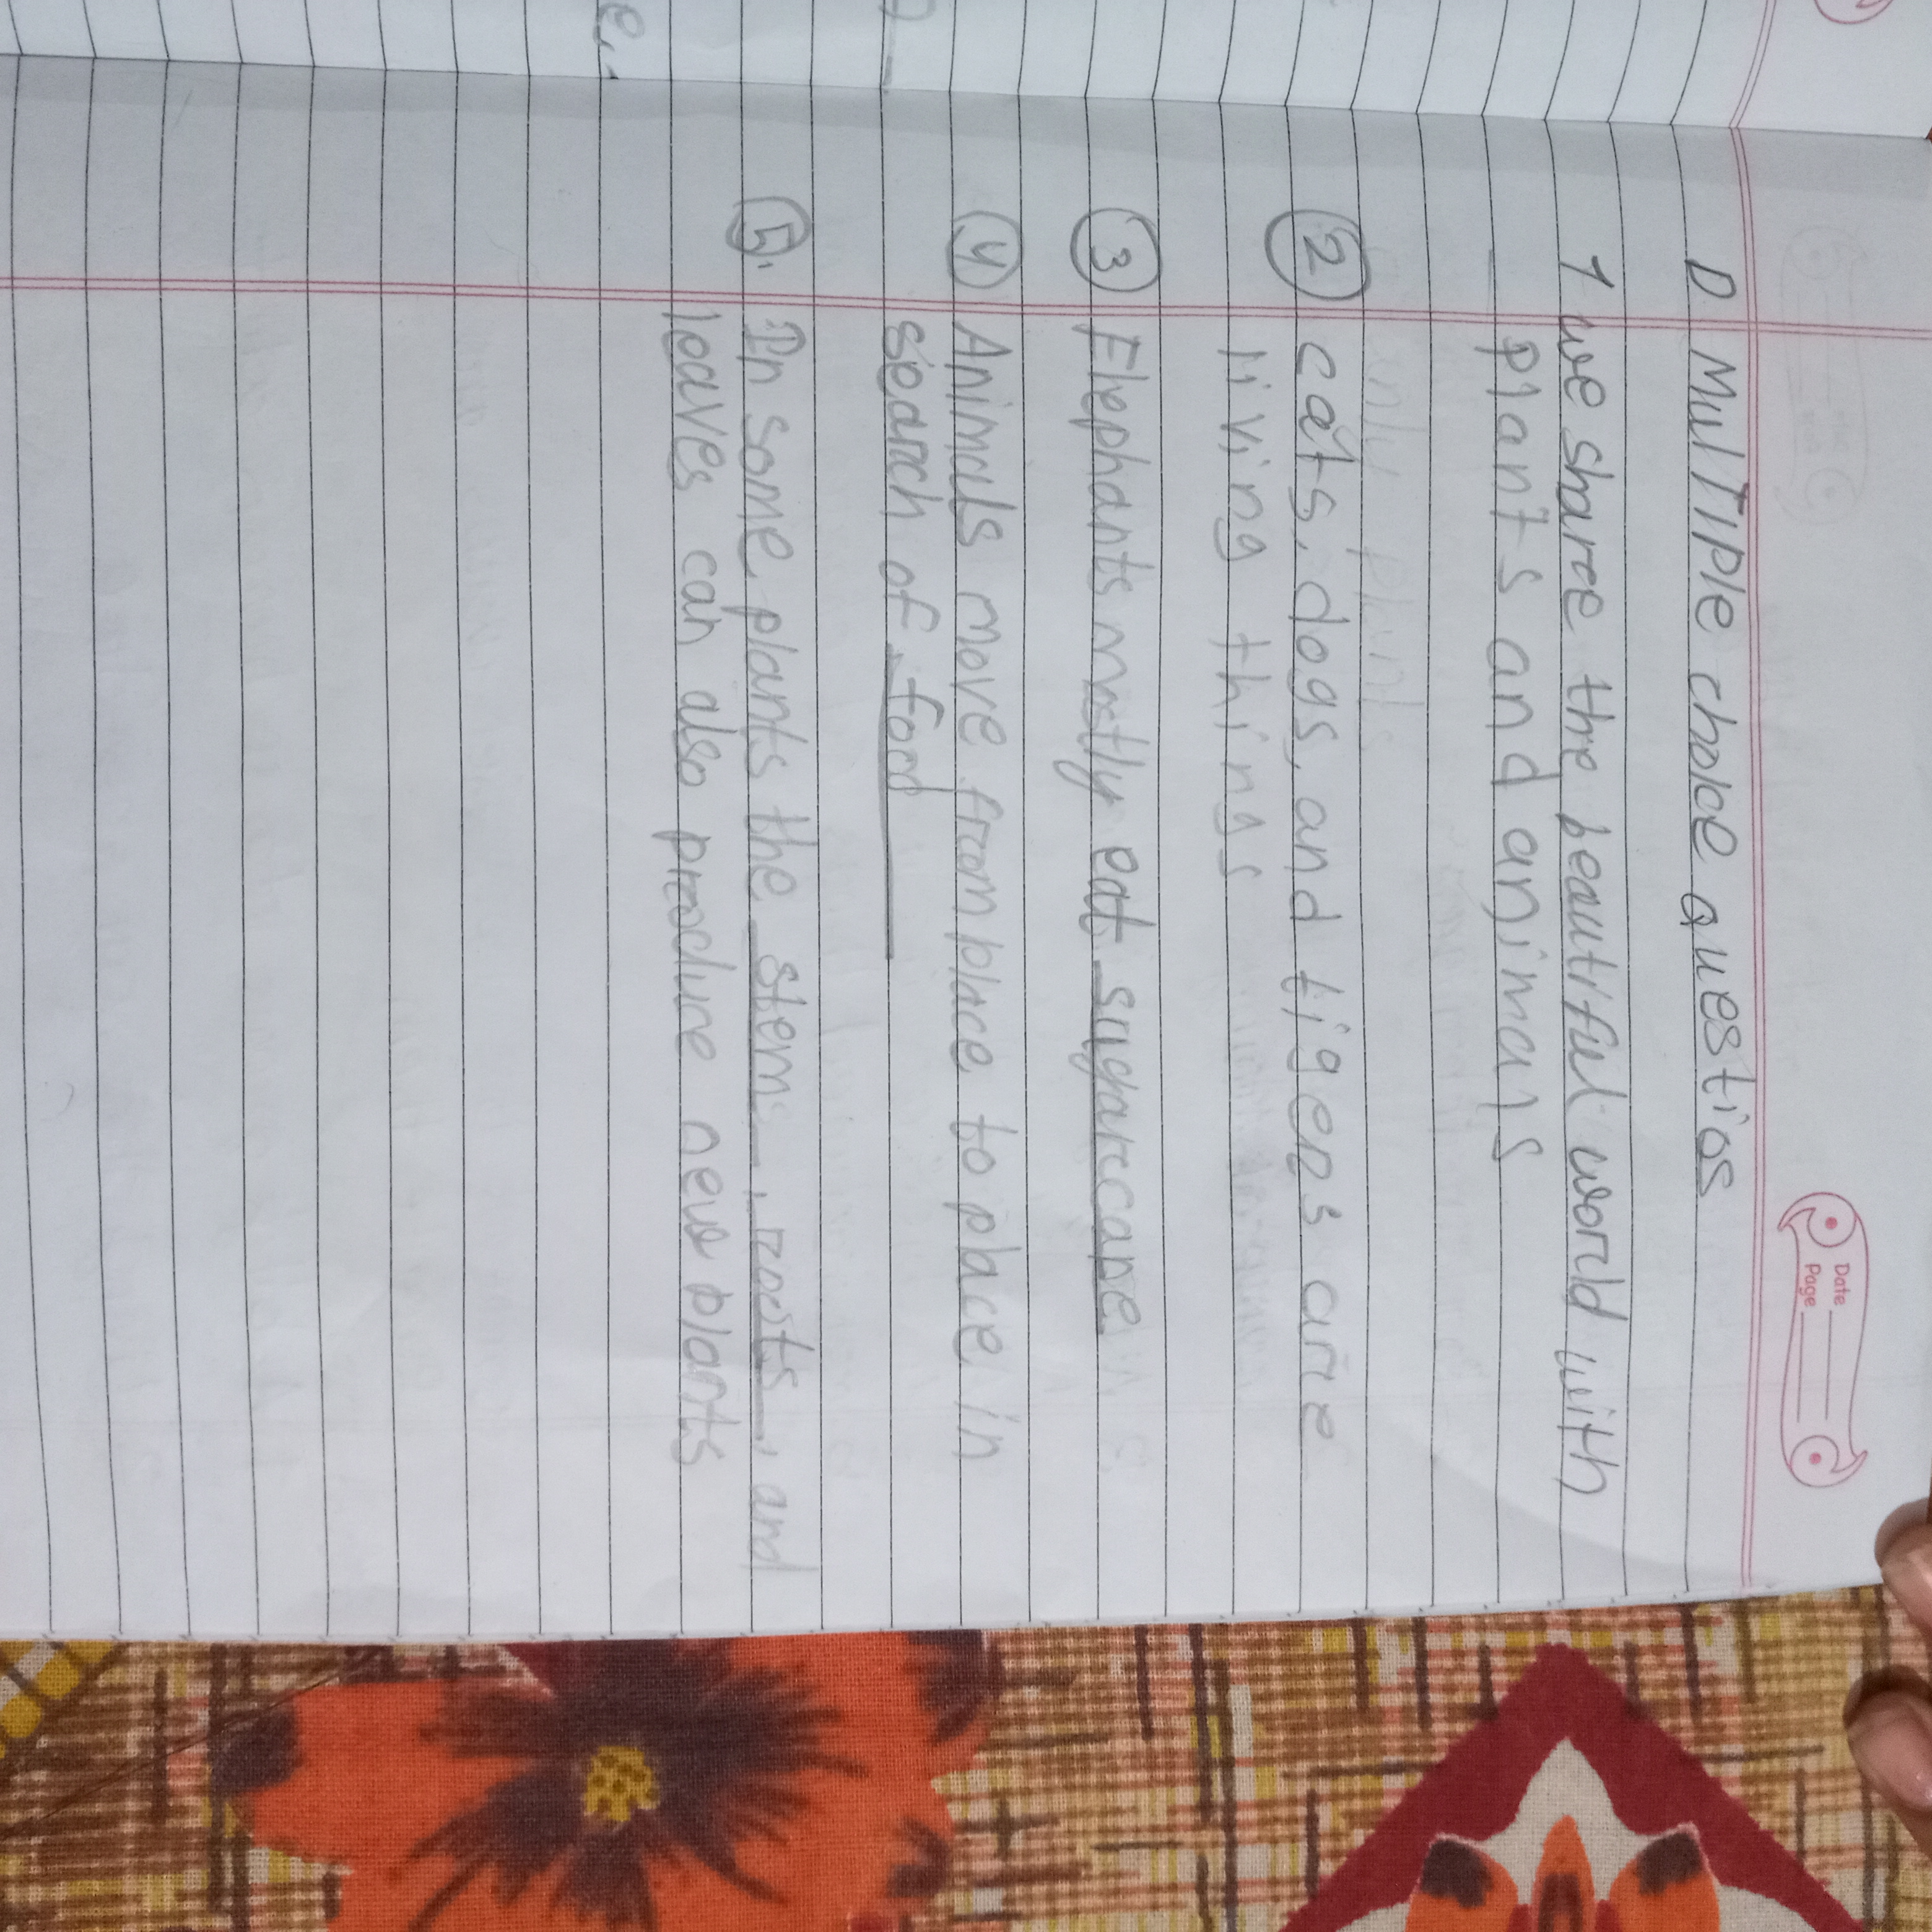 Date
Page
D MulTIPle choice questios
1 we share the beautiful world with
plants and animals
2 cats, dogs, and tigers are
living things
3 Elephants mostly eat sugarcane
4 Animals move from place to place in
search of food
5. In some plants the stem, roots, and
leaves can also produce new plants
e.